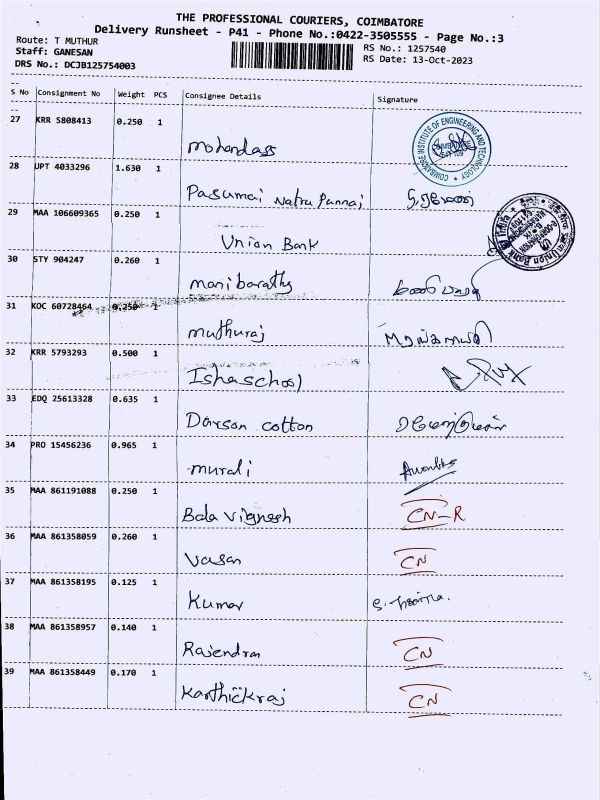 THE PROFESSIONAL COURIERS, COIMBATORE
Delivery Runsheet - P41 - Phone No.:0422-3505555 - Page No.:3
Route: T MUTHUR RS No.: 1257540
Staff: GANESAN RS Date: 13-Oct-2023
DRS No.: DCJB125754003
S No Consignment No Weight PCS Consignee Details Signature
27 KRR 5808413 0.250 1
Mohandass
COIMBATORE INSTITUTE OF ENGINEERING AND TECHNOLOGY
28 UPT 4033296 1.630 1
Pasumai Natru Pannai
29 MAA 106609365 0.250 1
Union Bank
Union Bank
30 STY 904247 0.260 1
manibarathy
31 KOC 60728464 0.250 1
muthuraj
32 KRR 5793293 0.500 1
Isha school
33 EDQ 25613328 0.635 1
Darson cotton
34 PRO 15456236 0.965 1
murali
35 MAA 861191088 0.250 1
Bala vignesh CN-R
36 MAA 861358059 0.260 1
Vasan CN
37 MAA 861358195 0.125 1
Kumar
38 MAA 861358957 0.140 1
Rajendran CN
39 MAA 861358449 0.170 1
Karthickraj CN